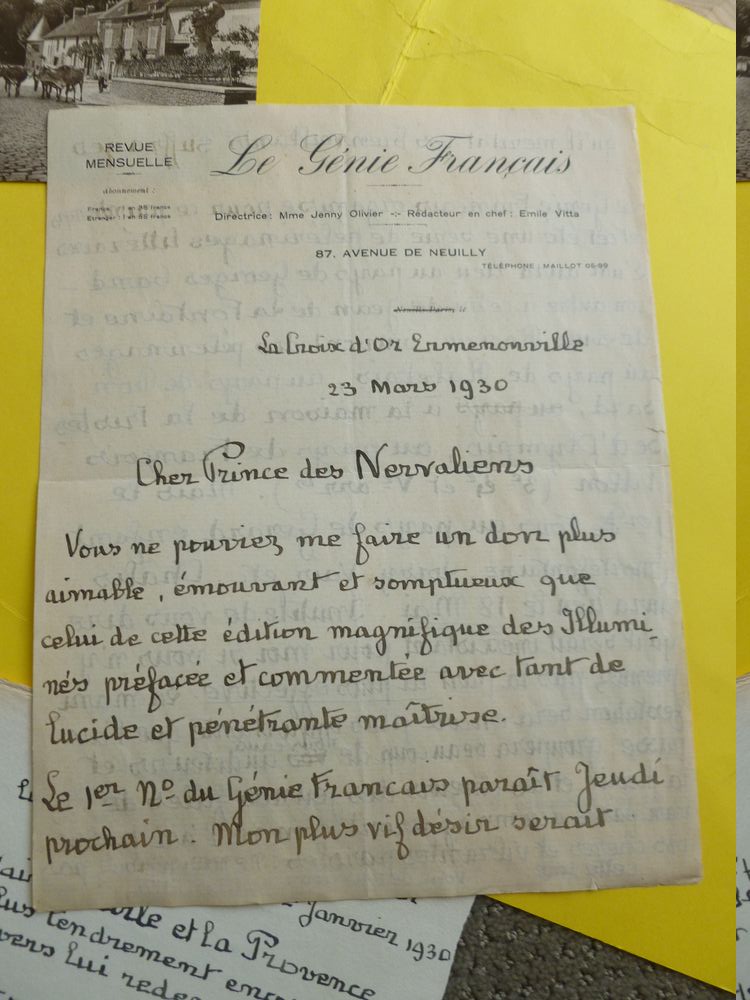 REVUE
MENSUELLE
Le Génie Français
Abonnement :
France : 1 an 35 francs
Etranger : 1 an 55 francs
Directrice : Mme Jenny Olivier -:- Rédacteur en chef : Emile Vitta
87, AVENUE DE NEUILLY
TÉLÉPHONE : MAILLOT 05-99
Neuilly-Paris, le
La Croix d'Or Ermenonville
23 Mars 1930
Cher Prince des Nervaliens
Vous ne pouviez me faire un don plus
aimable, émouvant et somptueux que
celui de cette édition magnifique des Illumi-
nés préfacée et commentée avec tant de
lucide et pénétrante maîtrise.
Le 1er No du Génie Francais paraît Jeudi
prochain. Mon plus vif désir serait
Janvier 1930
et la Provence
lus tendrement
vers Lui